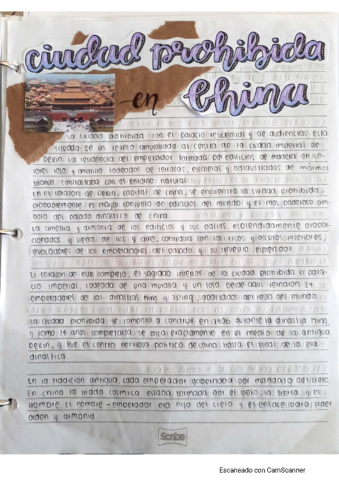 ciudad prohibida
en China
La ciudad prohibida con el palacio residencial y de audiencias está
situada en un recinto amurallado al centro de la ciudad imperial de
pekín la residencia del emperador formada por edificios de madera en co-
lores rojo y amarillo rodeados de terrazas, escaleras y balaustradas de mármol
blanco contrastaba con el entorno natural
En el corazón de pekín, capital de china, se encuentra la ciudad prohibida,
probablemente el mayor conjunto de edificios del mundo y el mas poderoso sim
bolo del pasado dinástico de china
La simetría y armonía de los edificios y sus patios, espléndidamente propor
cionados y llenos de luz y aire, contrasta con los ricos y oscuros interiores,
evocadores de los emperadores del pasado y su inmenso esplendor
El corazon de este complejo, el sagrado interior de la ciudad prohibida el pala-
cio imperial, rodeado de una muralla y un foso desde aquí reinaron 24
emperadores de las dinastías ming y tsing, apartados del resto del mundo
La ciudad prohibida se comenzo a construir en 1406 durante la dinastía Ming
y tomo 14 años completarla se ubica exactamente en el medio de la antigua
pekín, y fue el centro nervioso político de china hasta el final de la era
dinástica
En la tradición antigua, cada emperador gobernaba por mandato del cielo
En china la triada cósmica estaba formada por el cielo, la tierra y el
hombre El hombre-emperador era hijo del cielo y el enlace para traer
orden y armonia
Scribe
Escaneado con CamScanner